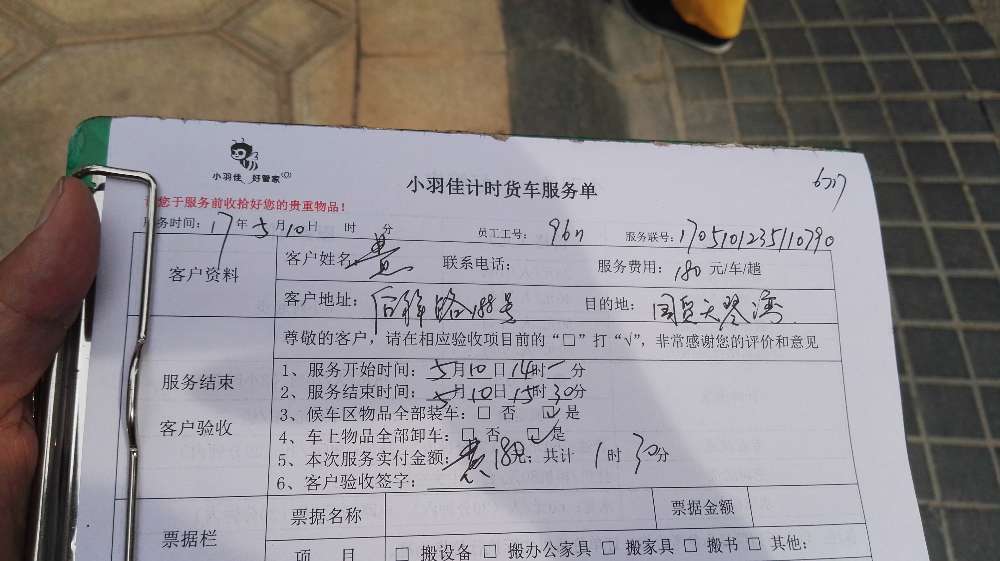 小羽佳 好管家
小羽佳计时货车服务单
您于服务前收拾好您的贵重物品！
服务时间：17年5月10日 时 分 员工工号： 服务联号：170510123510790
客户资料
客户姓名： 联系电话： 服务费用：180元/车/趟
客户地址： 路188号 目的地：国贸天琴湾
尊敬的客户，请在相应验收项目前的“□”打“√”，非常感谢您的评价和意见
服务结束
客户验收
1、服务开始时间：5月10日14时 分
2、服务结束时间：5月10日15时30分
3、候车区物品全部装车：□ 否 ☑ 是
4、车上物品全部卸车：□ 否 ☑ 是
5、本次服务实付金额：180元；共计 1时30分
6、客户验收签字：
票据栏
票据名称 票据金额
项 目 □ 搬设备 □ 搬办公家具 □ 搬家具 □ 搬书 □ 其他：